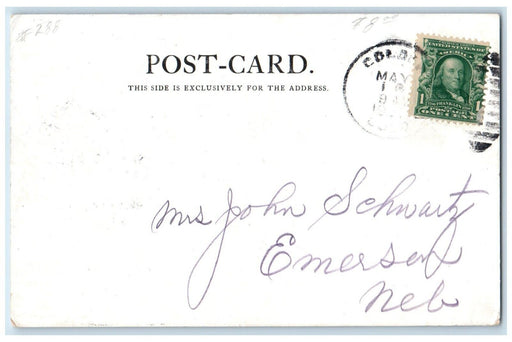 POST-CARD.
THIS SIDE IS EXCLUSIVELY FOR THE ADDRESS.
MAY
UNITED STATES OF
AMERICA
1
FRANKLIN
ONE CENT
Mrs John Schwartz
Emerson
Neb